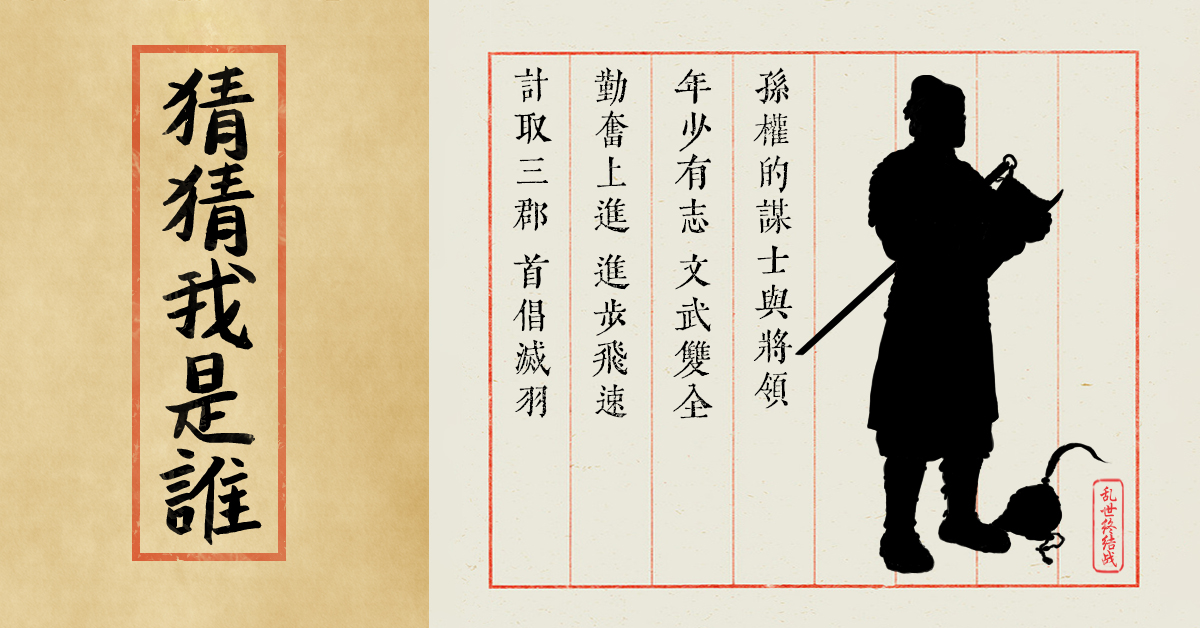 猜猜我是誰
孫權的謀士與將領
年少有志 文武雙全
勤奮上進 進步飛速
計取三郡 首倡滅羽
乱世终结战